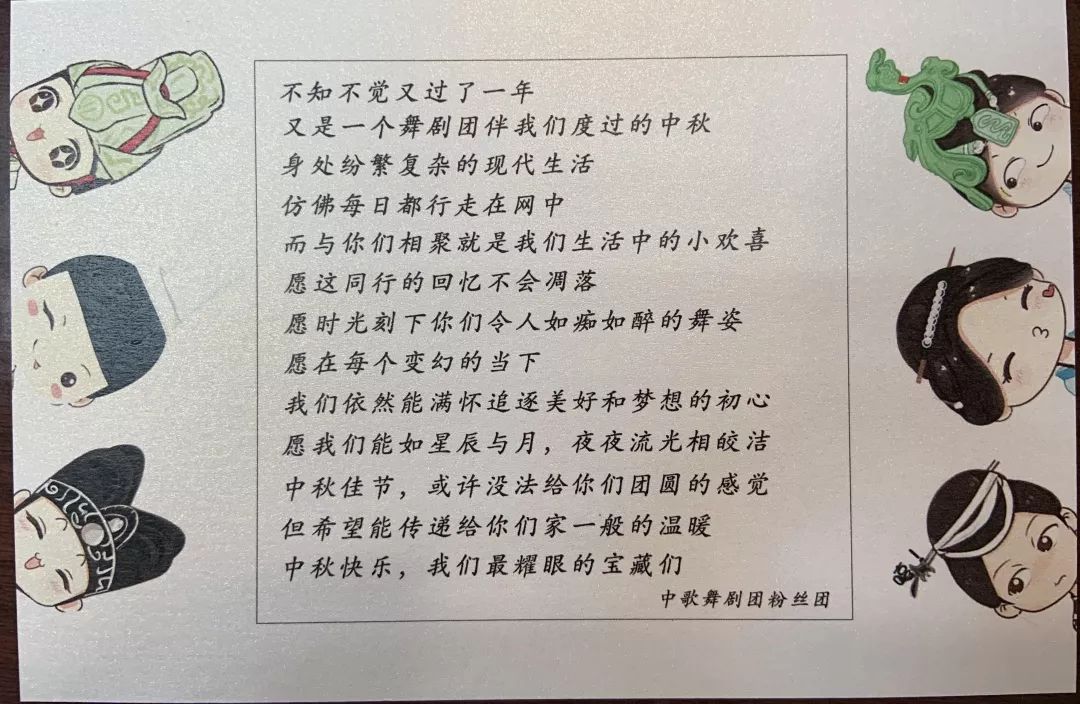 不知不觉又过了一年
又是一个舞剧团伴我们度过的中秋
身处纷繁复杂的现代生活
仿佛每日都行走在网中
而与你们相聚就是我们生活中的小欢喜
愿这同行的回忆不会凋落
愿时光刻下你们令人如痴如醉的舞姿
愿在每个变幻的当下
我们依然能满怀追逐美好和梦想的初心
愿我们能如星辰与月，夜夜流光相皎洁
中秋佳节，或许没法给你们团圆的感觉
但希望能传递给你们家一般的温暖
中秋快乐，我们最耀眼的宝藏们
中歌舞剧团粉丝团